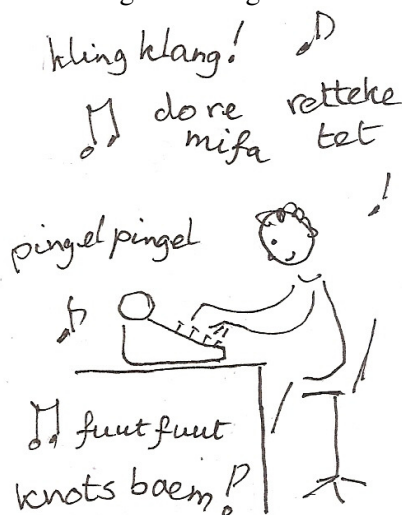 kling klang!
do re retteke
mifa tet
pingel pingel
fuut fuut
knots boem!